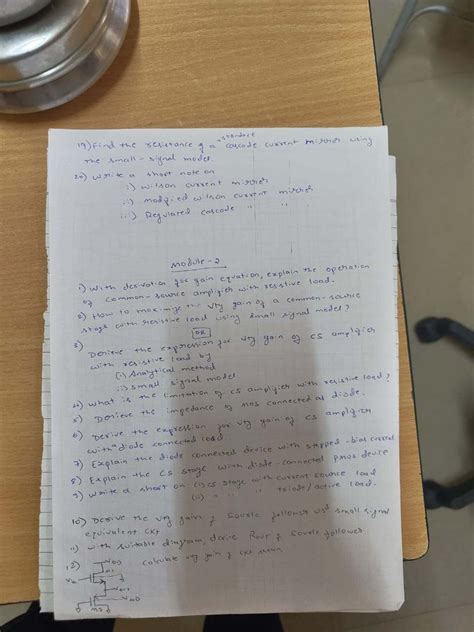 standard
19) Find the resistance of a cascode current mirror using
the small-signal model.
20) write a short note on
i) wilson current mirror
ii) modified wilson current mirror
iii) Regulated cascode " "
Module-2
1) With derivation for gain equation, explain the operation
of common-source amplifier with resistive load.
2) How to maximize the vtg gain of a common-source
stage with resistive load using small signal model?
OR
3) Derive the expression for vtg gain of CS amplifier
with resistive load by
(i) Analytical method
ii) small signal model
4) what is the limitation of CS amplifier with resistive load?
5) Derive the impedance of MOS connected as diode.
6) Derive the expression for vtg gain of CS amplifier
with diode connected load
7) Explain the diode connected device with stepped-bias current
8) Explain the CS stage with diode-connected PMOS device
9) write a short on (i) CS stage with current source load
(ii) " " " triode/active load.
10) Derive the vtg gain of source follower small signal
equivalent
11) with suitable diagram, derive Rout of source follower
12) calculate vtg gain of
VDD
M1
Vin
Vout
VDD
M2